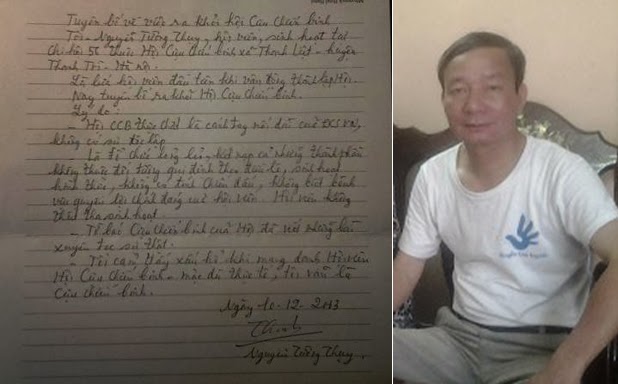 Tuyên bố về việc ra khỏi hội Cựu Chiến binh
Tôi - Nguyễn Tường Thụy, hội viên, sinh hoạt tại
Chi hội 5C thuộc Hội Cựu Chiến binh xã Thanh Liệt - huyện
Thanh Trì - Hà Nội.
Là hội viên đầu tiên khi vận động thành lập Hội.
Nay tuyên bố ra khỏi Hội Cựu Chiến binh.
Lý do:
- Hội CCB thực chất là cánh tay nối dài của ĐCSVN,
không có sự độc lập
- Là tổ chức lỏng lẻo, kết nạp cả những thành phần
không thuộc đối tượng qui định theo điều lệ, sinh hoạt
hình thức, không có tính chiến đấu, không bênh
vực quyền lợi chính đáng của hội viên. Hội viên không
thiết tha sinh hoạt
- Tờ báo Cựu chiến binh của Hội đã viết những bài
xuyên tạc sự thật.
- Tôi cảm thấy xấu hổ khi mang danh Hội viên
Hội Cựu Chiến binh - mặc dù thực tế, tôi vẫn là
Cựu chiến binh.
Ngày 10-12-2013
Nguyễn Tường Thụy